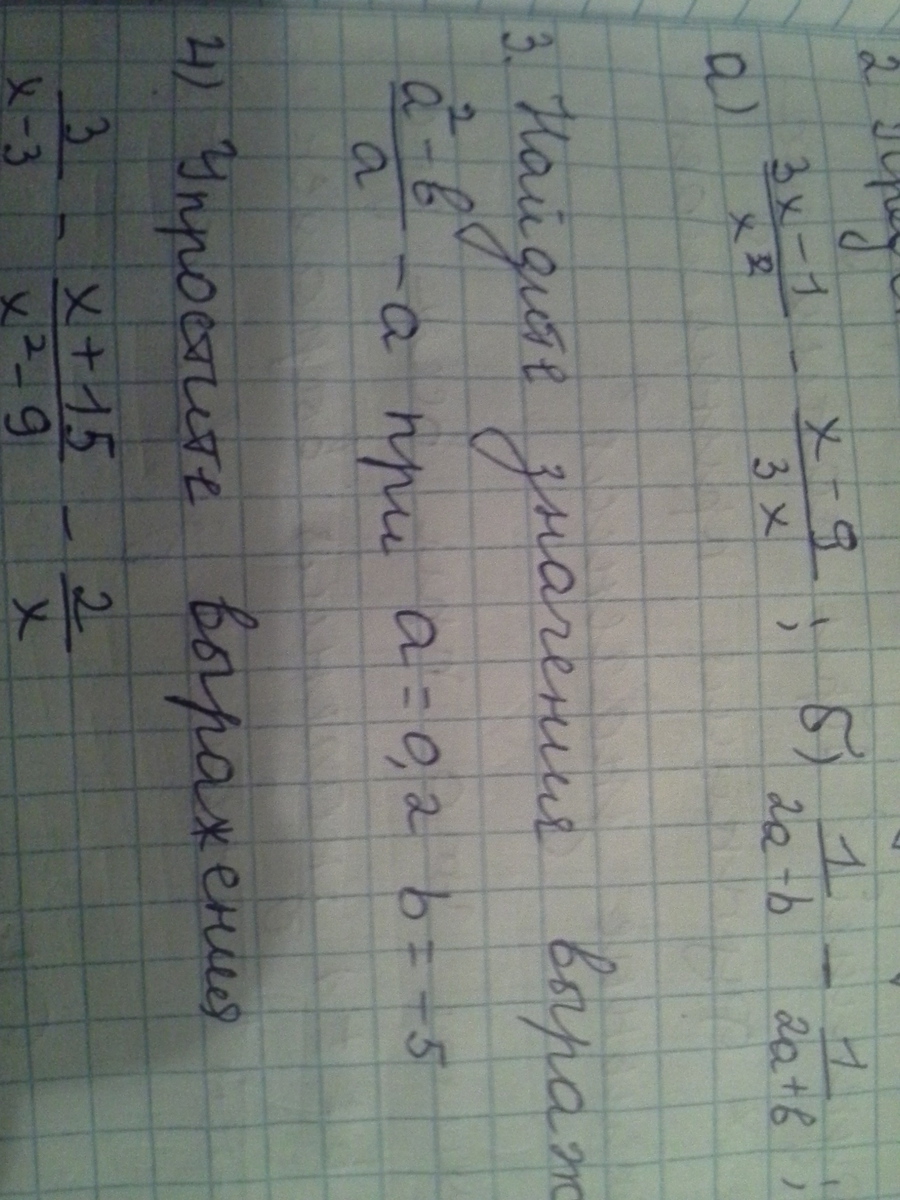 2.
а) (3x-1)/x² - (x-9)/3x ; б) 1/(2a-b) - 1/(2a+b) ;
3. Найдите значения выраж
(a²-b)/a - a при a=0,2 b=-5
4) Упростите выражения
3/(x-3) - (x+15)/(x²-9) - 2/x